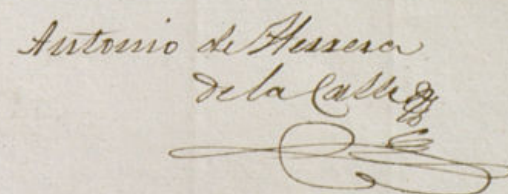 Antonio de Herrera
de la Calle